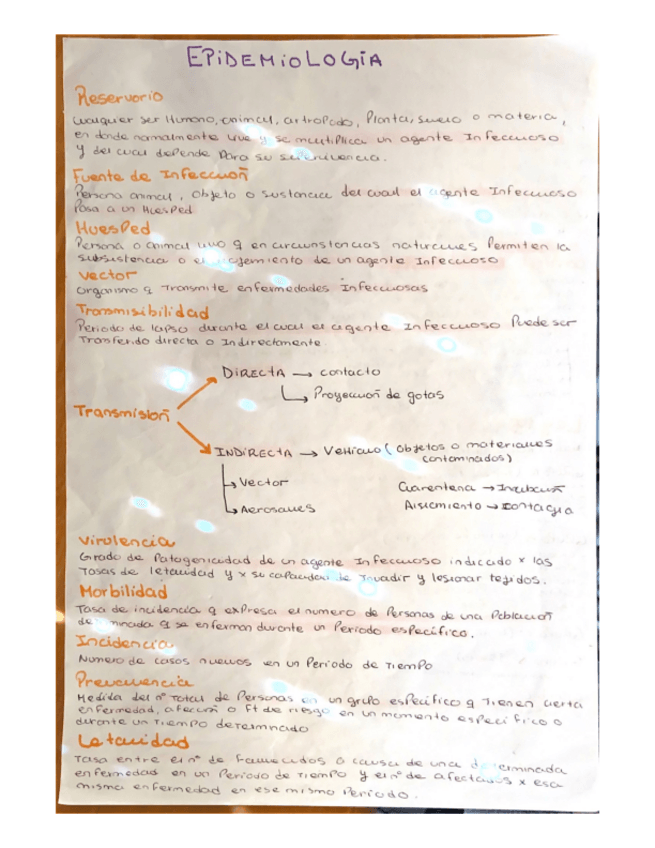 EPIDEMIOLOGIA
Reservorio
Cualquier ser Humano, animal, artropodo, Planta, suelo o materia,
en donde normalmente vive y se multiplica un agente Infeccioso
y del cual depende Para su supervivencia.
Fuente de Infección
Persona animal, objeto o sustancia del cual el agente Infeccioso
Pasa a un HuesPed
HuesPed
Persona o animal vivo q en circunstancias naturales Permiten la
subsistencia o el alojamiento de un agente Infeccioso
Vector
organismo q Transmite enfermedades Infecciosas
Transmisibilidad
Periodo de lapso durante el cual el agente Infeccioso Puede ser
Transferido directa o Indirectamente
DIRECTA → contacto
Proyección de gotas
Transmisión
INDIRECTA → Vehiculo (objetos o materiales
contaminados)
Vector
Cuarentena → Incubación
Aerosoles
Aislamiento → contagia
Virulencia
Grado de Patogenicidad de un agente Infeccioso indicado x las
Tasas de letalidad y x su capacidad de Invadir y lesionar tejidos.
Morbilidad
Tasa de incidencia q expresa el numero de Personas de una Población
determinada q se enferman durante un Periodo específico.
Incidencia
Numero de casos nuevos en un Periodo de Tiempo
Prevalencia
Medida del nº Total de Personas en un grupo específico q Tienen cierta
enfermedad, afección o ft de riesgo en un momento específico o
durante un Tiempo determinado
Letalidad
Tasa entre el nº de Fallecidos a causa de una determinada
enfermedad en un Periodo de Tiempo y el nº de afectados x esa
misma enfermedad en ese mismo Periodo.